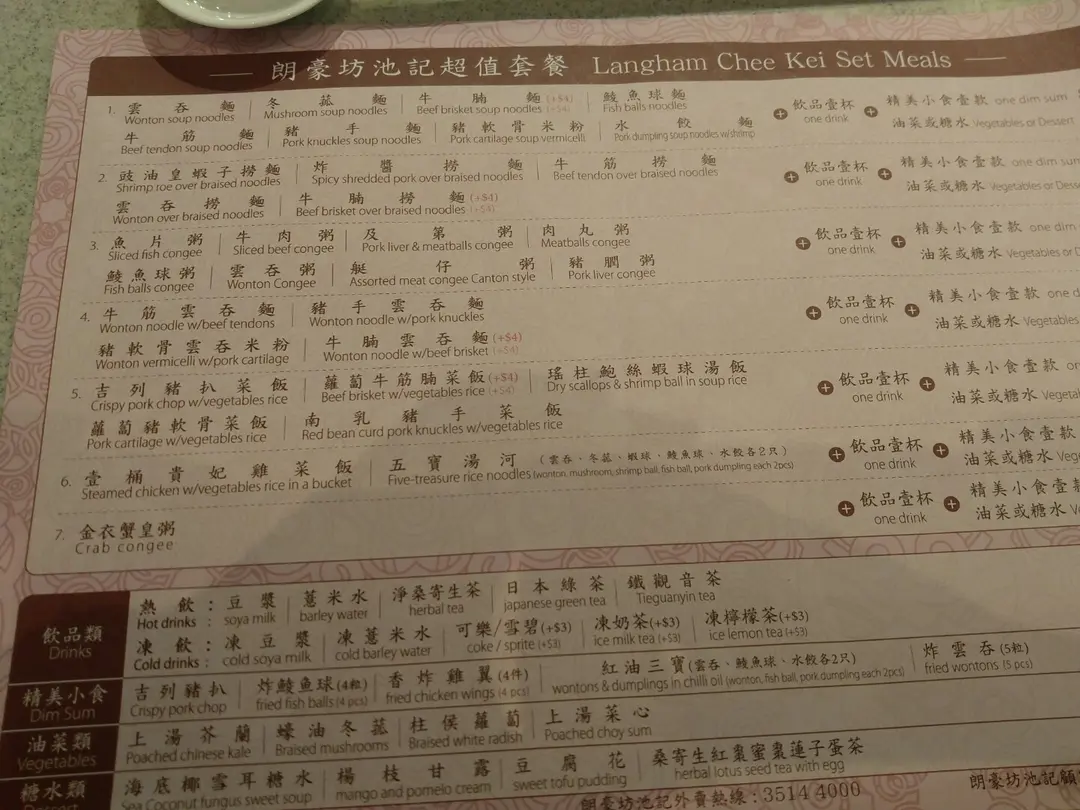 朗豪坊池記超值套餐 Langham Chee Kei Set Meals
1. 雲吞麵 冬菰麵 牛腩麵(+$4) 鯪魚球麵
Wonton soup noodles Mushroom soup noodles Beef brisket soup noodles (+$4) Fish balls noodles
牛筋麵 豬手麵 豬軟骨米粉 水餃麵
Beef tendon soup noodles Pork knuckles soup noodles Pork cartilage soup vermicelli Pork dumpling soup noodles w/shrimp
+ 飲品壹杯 + 精美小食壹款 one dim sum
one drink 油菜或糖水 Vegetables or Dessert
2. 豉油皇蝦子撈麵 炸醬撈麵 牛筋撈麵
Shrimp roe over braised noodles Spicy shredded pork over braised noodles Beef tendon over braised noodles
雲吞撈麵 牛腩撈麵(+$4)
Wonton over braised noodles Beef brisket over braised noodles (+$4)
+ 飲品壹杯 + 精美小食壹款 one dim sum
one drink 油菜或糖水 Vegetables or Desse
3. 魚片粥 牛肉粥 及第粥 肉丸粥
Sliced fish congee Sliced beef congee Pork liver & meatballs congee Meatballs congee
鯪魚球粥 雲吞粥 艇仔粥 豬膶粥
Fish balls congee Wonton Congee Assorted meat congee Canton style Pork liver congee
+ 飲品壹杯 + 精美小食壹款 one dim
one drink 油菜或糖水 Vegetables or D
4. 牛筋雲吞麵 豬手雲吞麵
Wonton noodle w/beef tendons Wonton noodle w/pork knuckles
豬軟骨雲吞米粉 牛腩雲吞麵(+$4)
Wonton vermicelli w/pork cartilage Wonton noodle w/beef brisket (+$4)
+ 飲品壹杯 + 精美小食壹款 one d
one drink 油菜或糖水 Vegetables
5. 吉列豬扒菜飯 蘿蔔牛筋腩菜飯(+$4) 瑤柱鮑絲蝦球湯飯
Crispy pork chop w/vegetables rice Beef brisket w/vegetables rice (+$4) Dry scallops & shrimp ball in soup rice
蘿蔔豬軟骨菜飯 南乳豬手菜飯
Pork cartilage w/vegetables rice Red bean curd pork knuckles w/vegetables rice
+ 飲品壹杯 + 精美小食壹款 on
one drink 油菜或糖水 Vegeta
6. 壹桶貴妃雞菜飯 五寶湯河 (雲吞、冬菰、蝦球、鯪魚球、水餃各2只)
Steamed chicken w/vegetables rice in a bucket Five-treasure rice noodles (wonton, mushroom, shrimp ball, fish ball, pork dumpling each 2pcs)
+ 飲品壹杯 + 精美小食壹款
one drink 油菜或糖水 Ve
7. 金衣蟹皇粥
Crab congee
+ 飲品壹杯 + 精美小食壹款
one drink 油菜或糖水 Ve
飲品類
Drinks
熱飲: 豆漿 薏米水 淨桑寄生茶 日本綠茶 鐵觀音茶
Hot drinks: soya milk barley water herbal tea japanese green tea Tieguanyin tea
凍飲: 凍豆漿 凍薏米水 可樂/雪碧(+$3) 凍奶茶(+$3) 凍檸檬茶(+$3)
Cold drinks: cold soya milk cold barley water coke / sprite (+$3) ice milk tea (+$3) ice lemon tea (+$3)
精美小食
Dim Sum
吉列豬扒 炸鯪魚球(4粒) 香炸雞翼(4件) 紅油三寶(雲吞、鯪魚球、水餃各2只) 炸雲吞(5粒)
Crispy pork chop fried fish balls (4 pcs) fried chicken wings (4 pcs) wontons & dumplings in chilli oil (wonton, fish ball, pork dumpling each 2pcs) fried wontons (5 pcs)
油菜類
Vegetables
上湯芥蘭 蠔油冬菰 柱侯蘿蔔 上湯菜心
Poached chinese kale Braised mushrooms Braised white radish Poached choy sum
糖水類
Dessert
海底椰雪耳糖水 楊枝甘露 豆腐花 桑寄生紅棗蜜棗蓮子蛋茶
Sea Coconut fungus sweet soup mango and pomelo cream sweet tofu pudding herbal lotus seed tea with egg
朗豪坊池記外賣熱線:3514 4000 朗豪坊池記顧